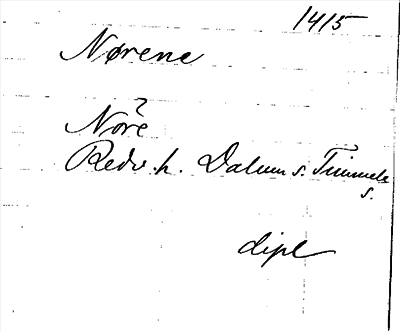 1415
Nørene
?
Nöre
Redv. h. Dalum s. Timmele
s.
dipl